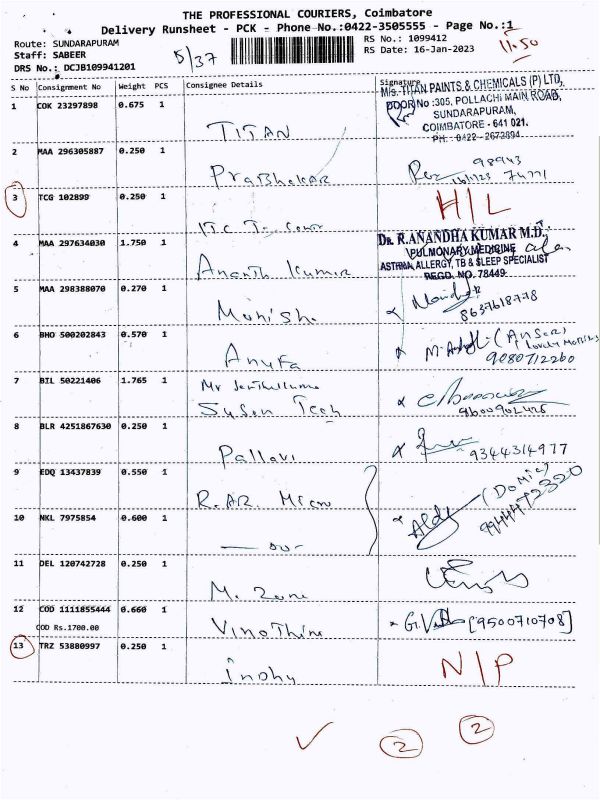 THE PROFESSIONAL COURIERS, Coimbatore
Delivery Runsheet - PCK - Phone No.:0422-3505555 - Page No.:1
Route: SUNDARAPURAM
RS No.: 1099412
Staff: SABEER
5/37
RS Date: 16-Jan-2023
11.50
DRS No.: DCJB109941201
S No Consignment No Weight PCS Consignee Details Signature
M/s. TITAN PAINTS & CHEMICALS (P) LTD,
DOOR No :305, POLLACHI MAIN ROAD,
SUNDARAPURAM,
COIMBATORE - 641 021.
PH : 0422 - 2673894
1 COK 23297898 0.675 1
TITAN
2 MAA 296305887 0.250 1
Prabhakar
98943
74771
3 TCG 102899 0.250 1
ITC
H/L
4 MAA 297634030 1.750 1
Ananth Kumar
Dr. R.ANANDHA KUMAR M.D.,
PULMONARY MEDICINE
ASTHMA, ALLERGY, TB & SLEEP SPECIALIST
REGD. NO. 78449
5 MAA 298388070 0.270 1
Munish.
8637618778
6 BHO 500202843 0.570 1
Anufa
9080712260
7 BIL 50221406 1.765 1
Mr
Suson Tech
9600902426
8 BLR 4251867630 0.250 1
Pallavi
9344314977
9 EDQ 13437839 0.550 1
R.AR Micro
10 NKL 7975854 0.600 1
— do —
9944472320
11 DEL 120742728 0.250 1
M.
12 COD 1111855444 0.660 1
COD Rs.1700.00
Vinothini
[9500710708]
13 TRZ 53880997 0.250 1
N/P
2
2